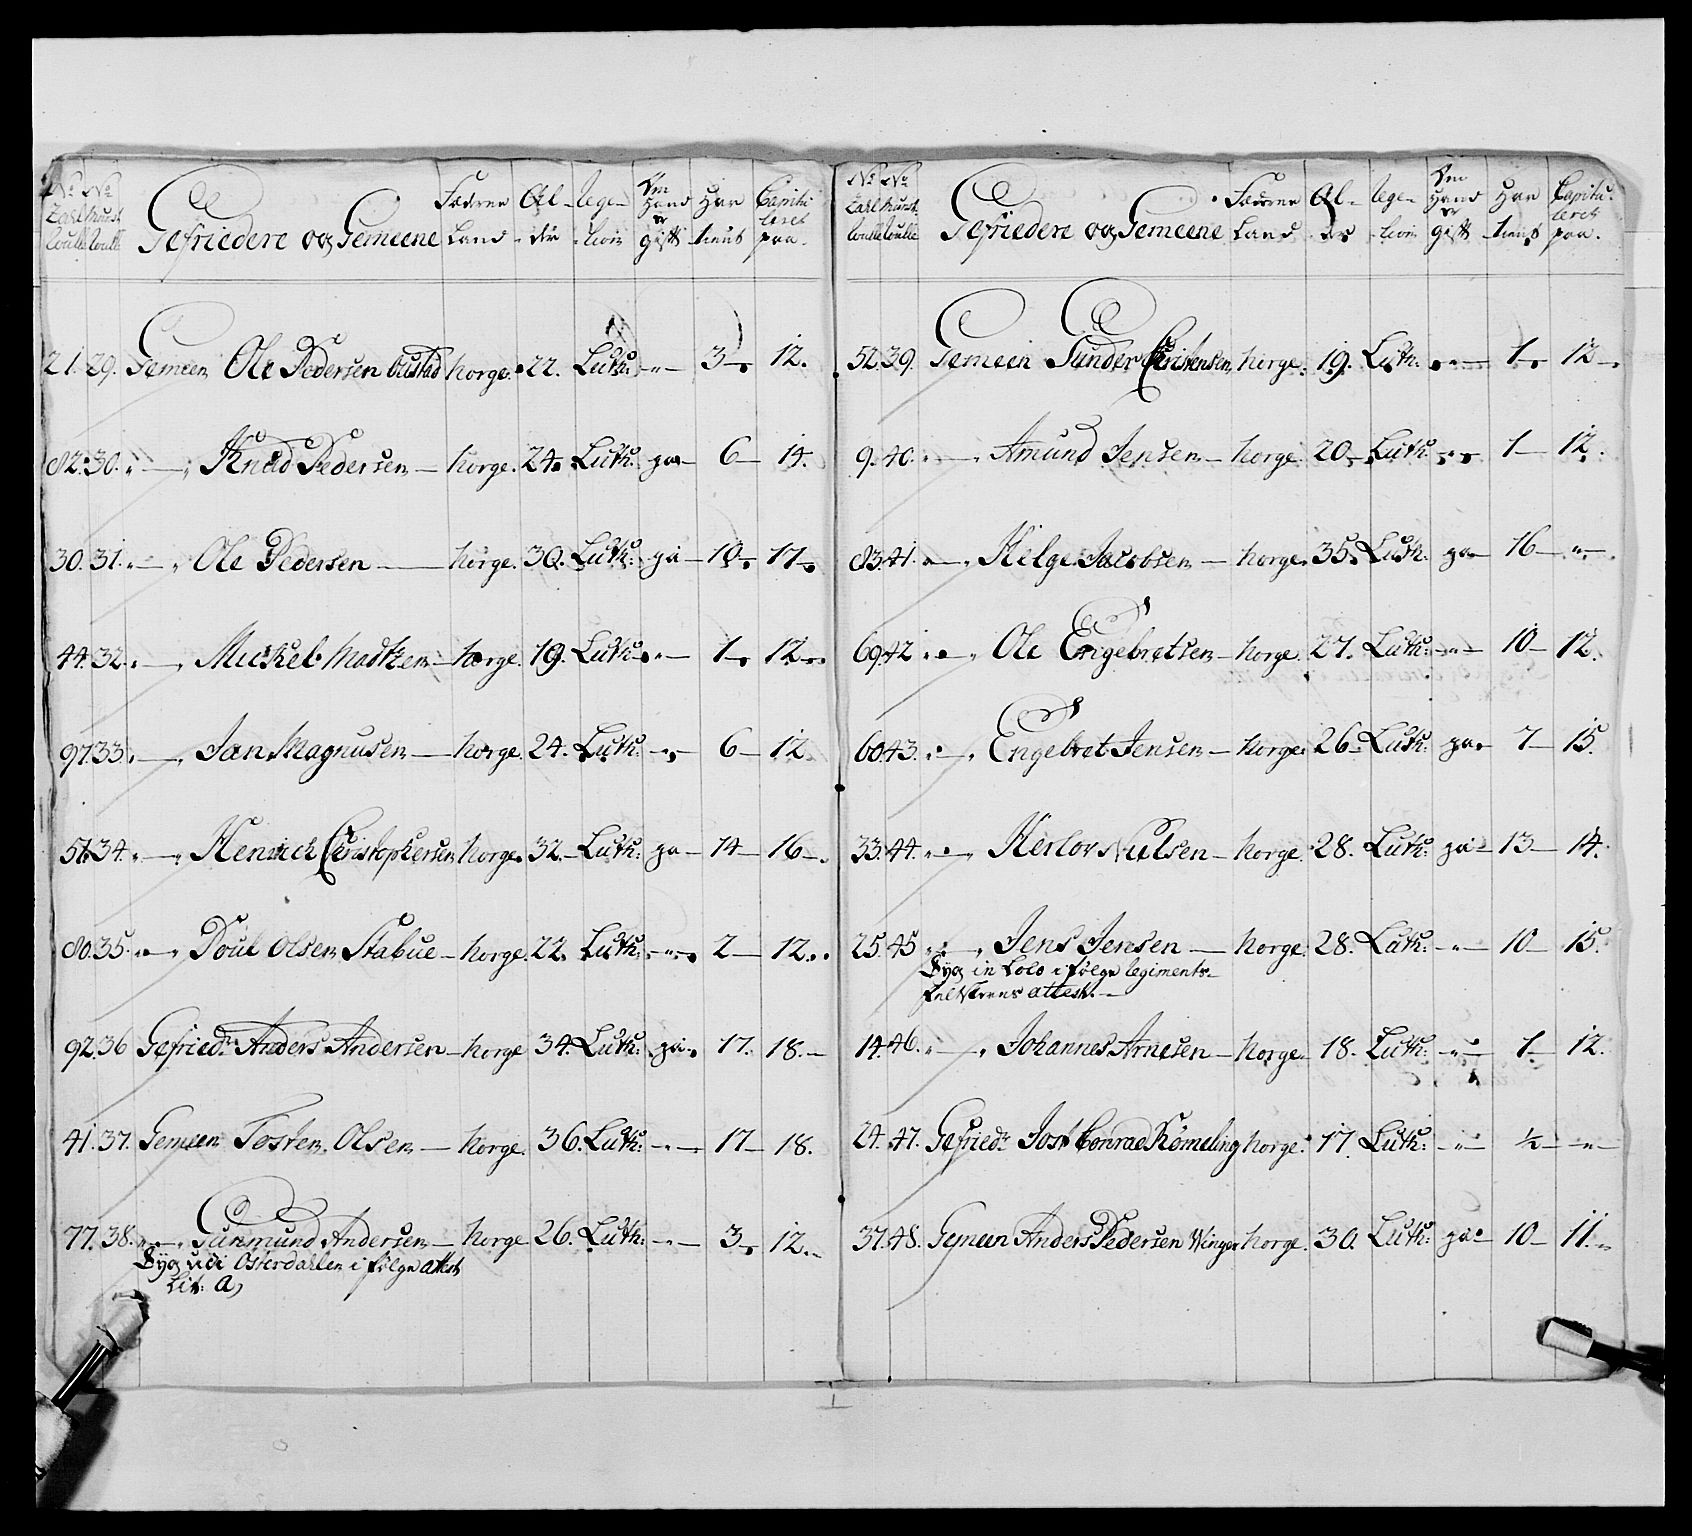 No No Gefriedere og Gemeene Fæderne Land Al-der Religeion Om Hand er Gift Har tient Capituleret paa
21. 29. Gemeen Ole Pedersen Bustad Norge. 22. Luth: -"- 3 12.
82. 30. " Knud Pedersen Norge. 24. Luth: ja 6 14.
30. 31. " Ole Pedersen Norge. 30. Luth: ja 10 17
44. 32. " Mickel Madtzen Norge. 19. Luth: -"- 1 12
97. 33. " Jan Magnusen Norge. 24. Luth: -"- 6 12
51. 34. " Henrich Christophersen Norge. 32. Luth: ja 14 16
80. 35. " Poul Olsen Stabue Norge. 22. Luth: -"- 2 12
92. 36 Gefriedr Anders Andersen Norge 34. Luth: ja 17. 18.
41. 37. Gemeen Tosten Olsen Norge. 36. Luth: -"- 17 18.
77. 38. " Gunmund Andersen Norge 26. Luth: -"- 3 12.
Syg udi Østerdahlen i følge attest
Lit: A)
No No Gefriedere og Gemeene Fæderne Land Al-der Religeion Om Hand er Gift Har tient Capituleret paa.
52. 39. Gemeen Gunder Christensen Norge. 19. Luth: -"- 1 12
9. 40. " Amund Jensen Norge. 20 Luth: -"- 1 12.
83. 41. " Helge Jacobsen Norge. 35. Luth: ja 16 -"-
69. 42 " Ole Engebretsen Norge. 27. Luth: -"- 10 12.
60. 43. " Engebret Jensen Norge. 26 Luth: ja 7 15.
33. 44. " Herlov Nielsen Norge. 28. Luth: ja 13 14.
25. 45 " Jens Jensen Norge. 28. Luth: -"- 10 15.
Syg in Loco i følge Regiments-
feltskerens attest.
14. 46. " Johannes Arnesen Norge. 18. Luth: -"- 1 12.
24. 47. Gefriedr Jost Conrad Rømeling Norge. 17. Luth: -"- ½ -"-
37. 48. Gemeen Anders Pedersen Winger Norge. 30. Luth: ja 10 11.